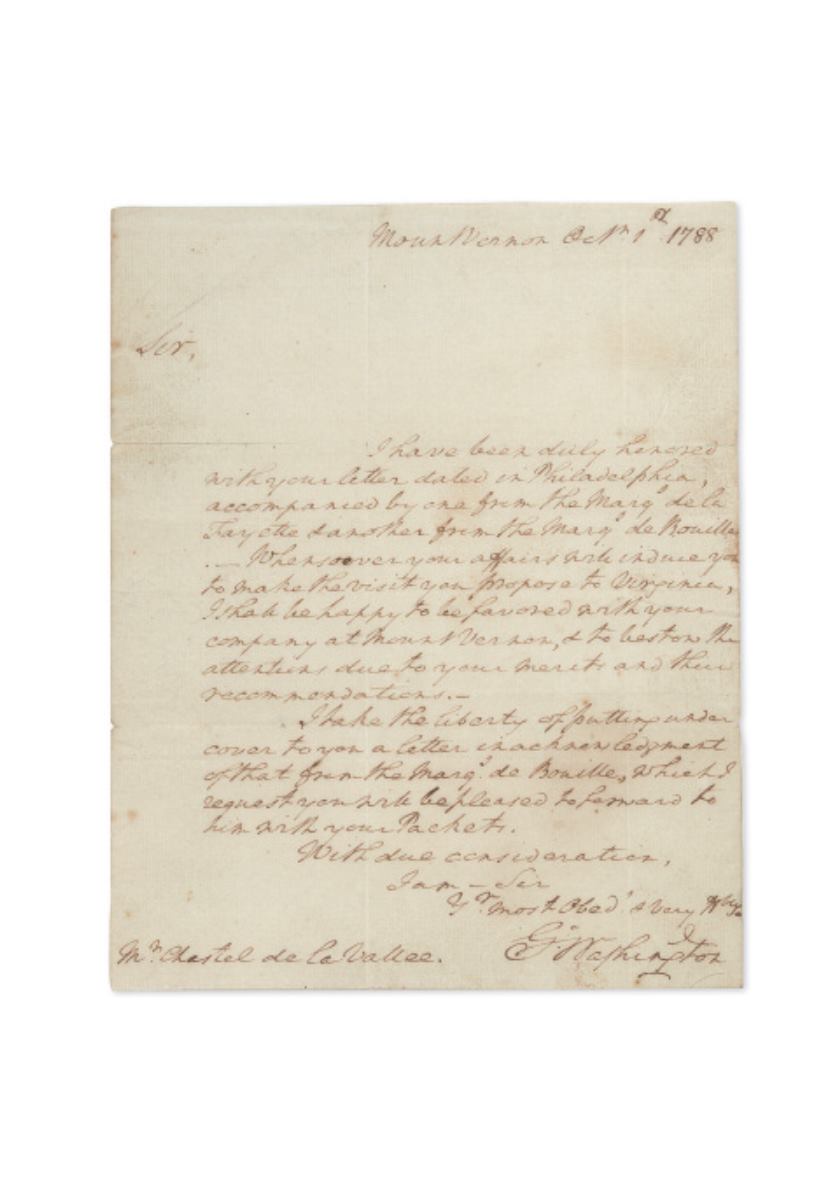 Mount Vernon Octr 1st 1788
Sir,
I have been duly honored
with your letter dated in Philadelphia,
accompanied by one from the Marqs de la
Fayette & another from the Marqs de Bouille
.— Whensoever your affairs will induce you
to make the visit you propose to Virginia,
I shall be happy to be favored with your
company at Mount Vernon, & to bestow the
attentions due to your merits and their
recommendations.—
I take the liberty of putting under
cover to you a letter in acknowledgment
of that from the Marqs. de Bouille, which I
request you will be pleased to forward to
him with your Packets.
With due consideration,
I am – Sir
Yr. most Obedt & very
Mr. Chastel de la Vallee.
Go. Washington